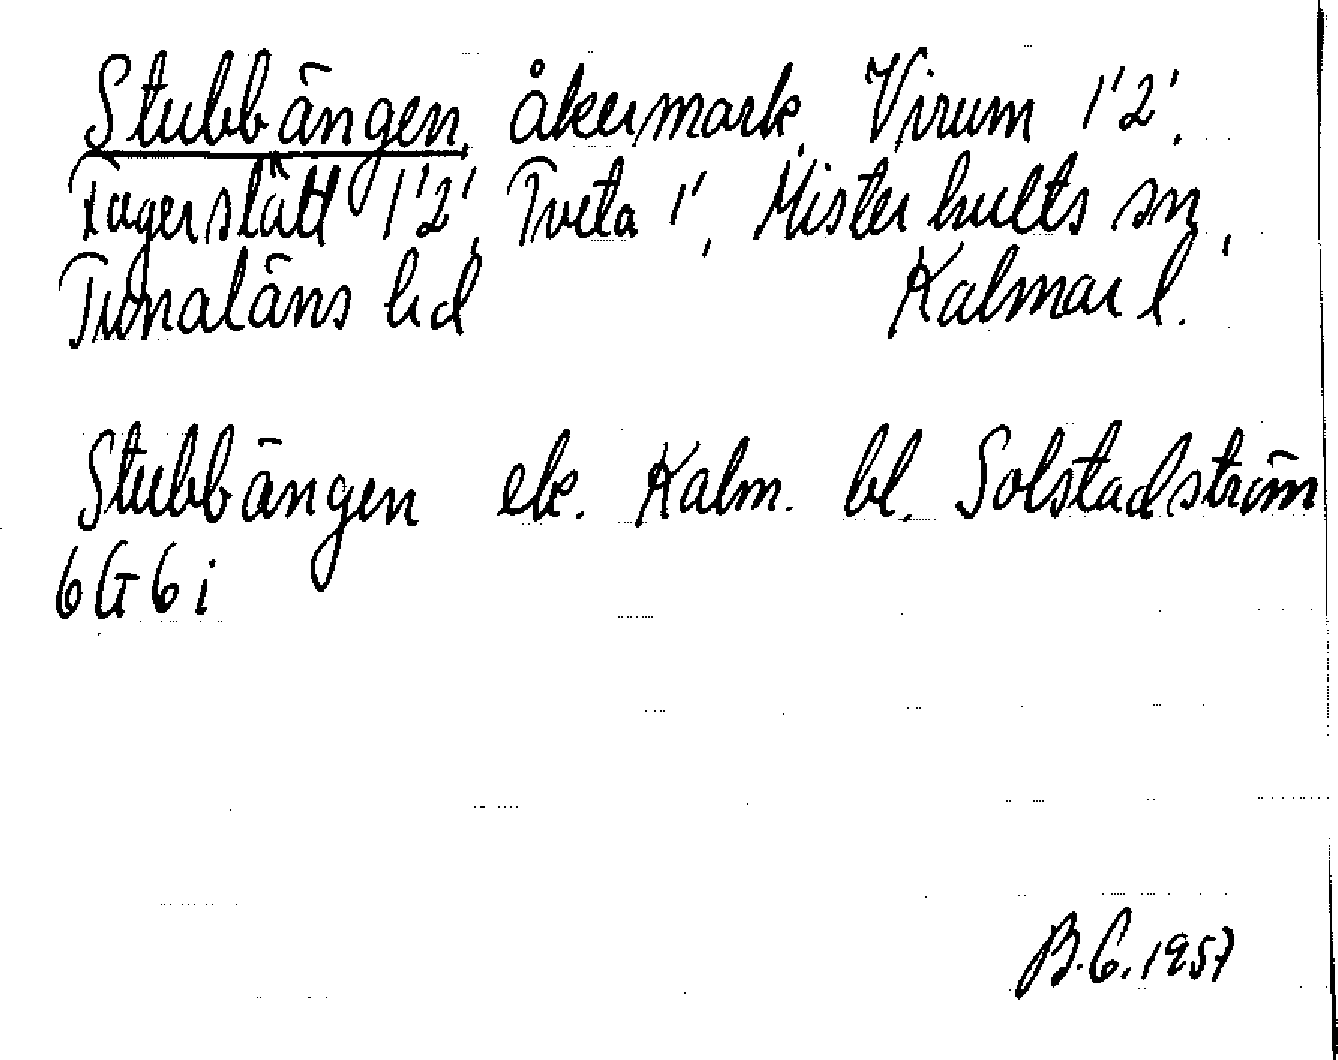 Stubbängen, åkermark, Virum 1'2',
Fagerslätt 1'2', Tveta 1', Misterhults sn,
Tunaläns hd Kalmar l.
Stubbängen ek. Kalm. bl. Solstadström
6G6i
B.G. 1957